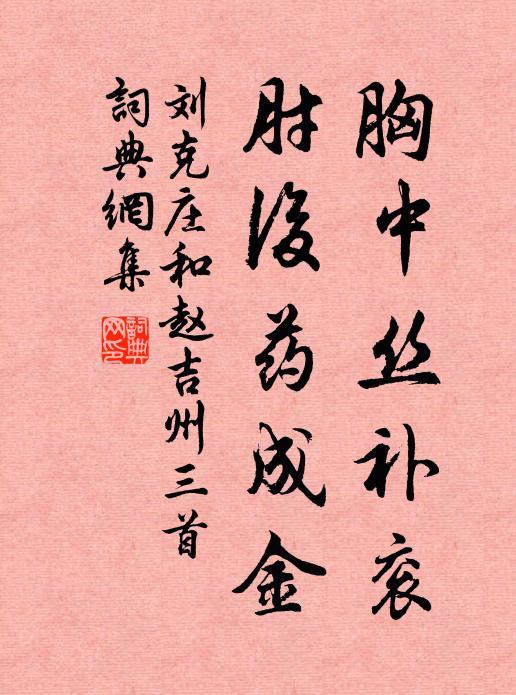 胸中丝补衮
肘後药成金
刘克庄和赵吉州三首
詞典網集
詞典网印